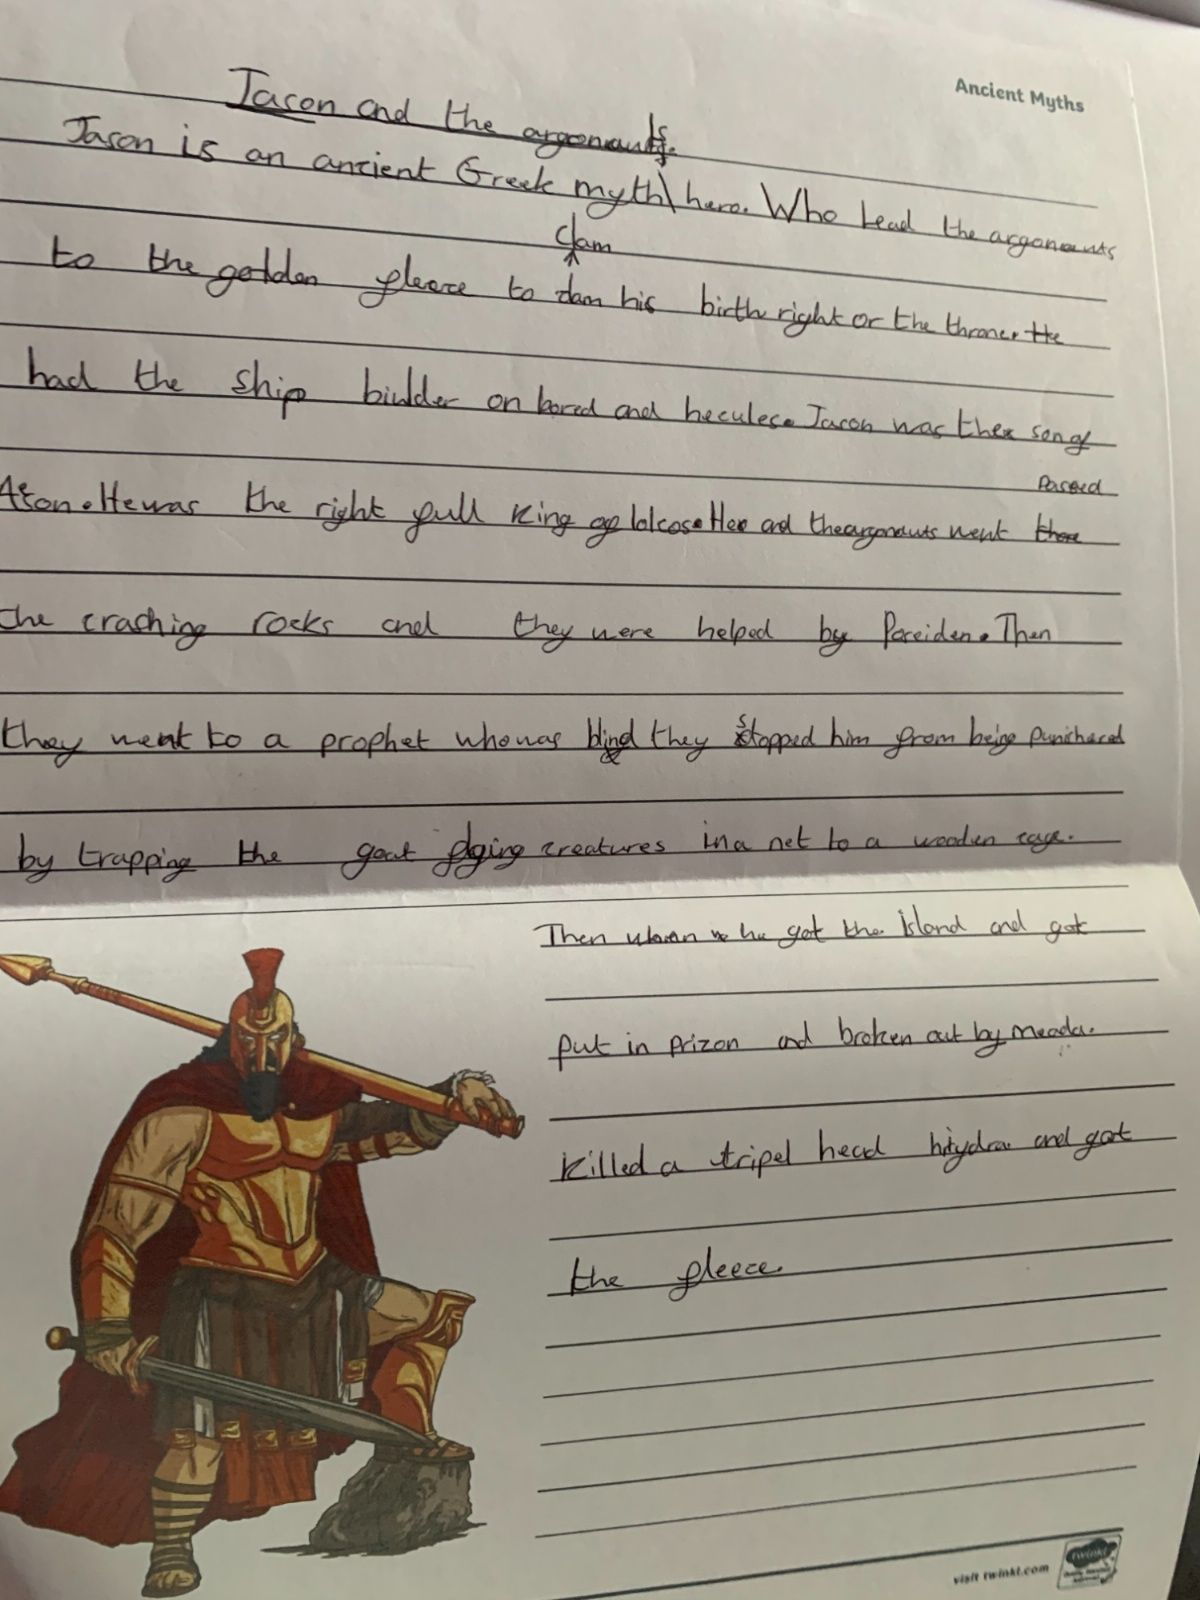 Ancient Myths
Jason and the argonauts.
Jason is an antcient Greek myth\ hero. Who lead the argonauts
clam
to the golden fleece to his birth right or the throne. He
had the ship biulder on bored and heculese. Jason was the son of
passed
Ason. He was the right full King of Iolcos. He and the argonauts went
the crashing rocks and they were helped by Poseiden. Then
they went to a prophet who was blind they stopped him from being punished
by trapping the goat flying creatures in a net to a wooden cage.
Then when he got the island and got
put in prizon and broken out by meada.
Killed a tripel head hydra and got
the fleece.
visit twinkl.com
twinkl